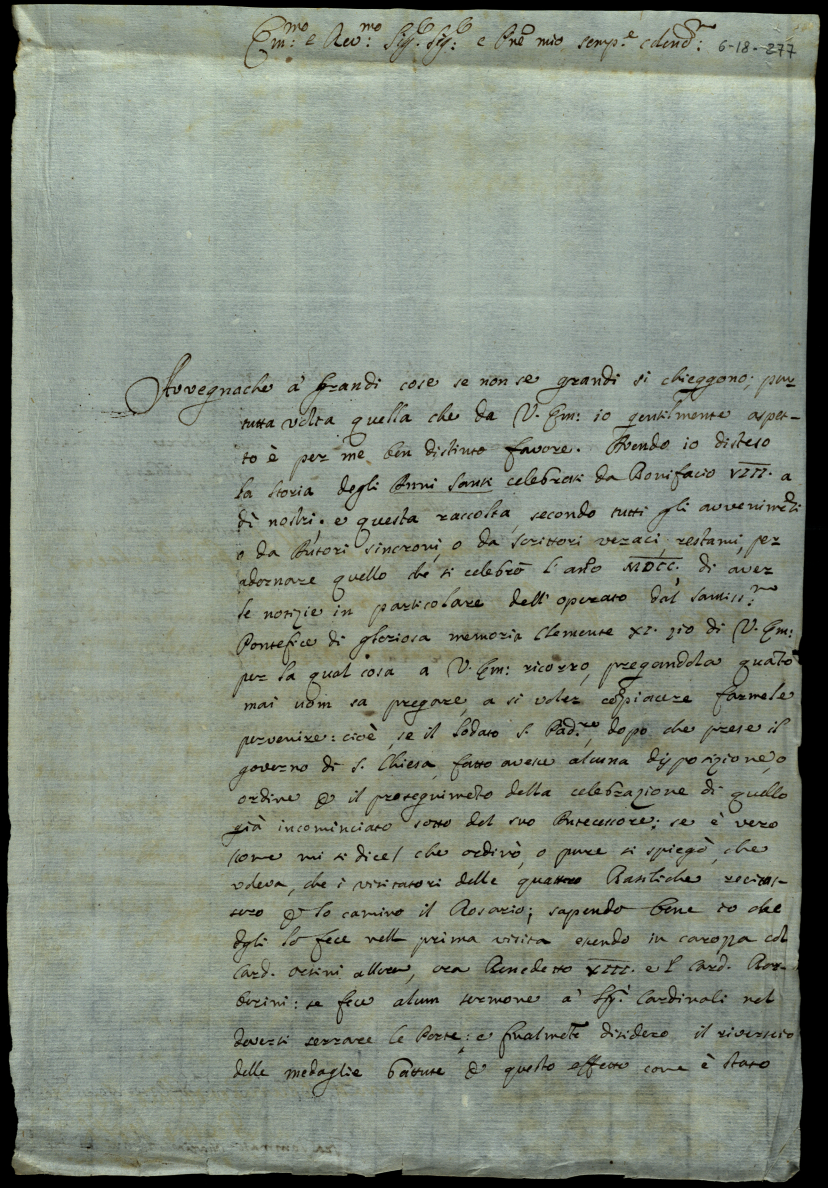 Em:mo e Rev:mo Sig.r Sig.r e Prōe mio semp.e colend.mo: 6-18-277
Avvegnache à Grandi cose se non se grandi si chieggono; pur
tutta volta quella che da V. Em: io gentilmente aspet-
to è per me ben distinto favore. Avendo io disteso
la storia degli Anni Santi celebrati da Bonifacio VIII. a
dì nostri: e questa raccolta, secondo tutti gli avvenimēti
o da Autori sincroni, o da Scrittori veraci, restami, per
adornare quello che si celebrò l'año MDCC. di aver
le notizie in particolare dell'operato dal Santiss:mo
Pontefice di gloriosa memoria Clemente XI. zio di V. Em:
per la qual cosa a V. Em: ricorro, pregandola quāto
mai uom sa pregare, a si voler cōpiacere farmele
pervenire: cioè, se il lodato S. Padre, dopo che prese il
governo di S. Chiesa, fatto avesse alcuna disposizione, o
ordine p il proseguimēto della celebrazione di quello
già incominciato sotto del suo Antecessore: se è vero
(come mi si dice) che ordinò, o pure si spiegò, che
voleva, che i visitatori delle quattro Basiliche recitas-
sero p lo camino il Rosario; sapendo bene io che
egli lo fece nella prima visita essendo in carozza col
Card. Orsini allora, ora Benedetto XIII. e l Card. Bar-
berini: se fece alcun sermone a' Sig.i Cardinali nel
doversi serrare le Porte: e finalmēte disidero il riverscio
delle medaglie battute p questo effetto come è stato